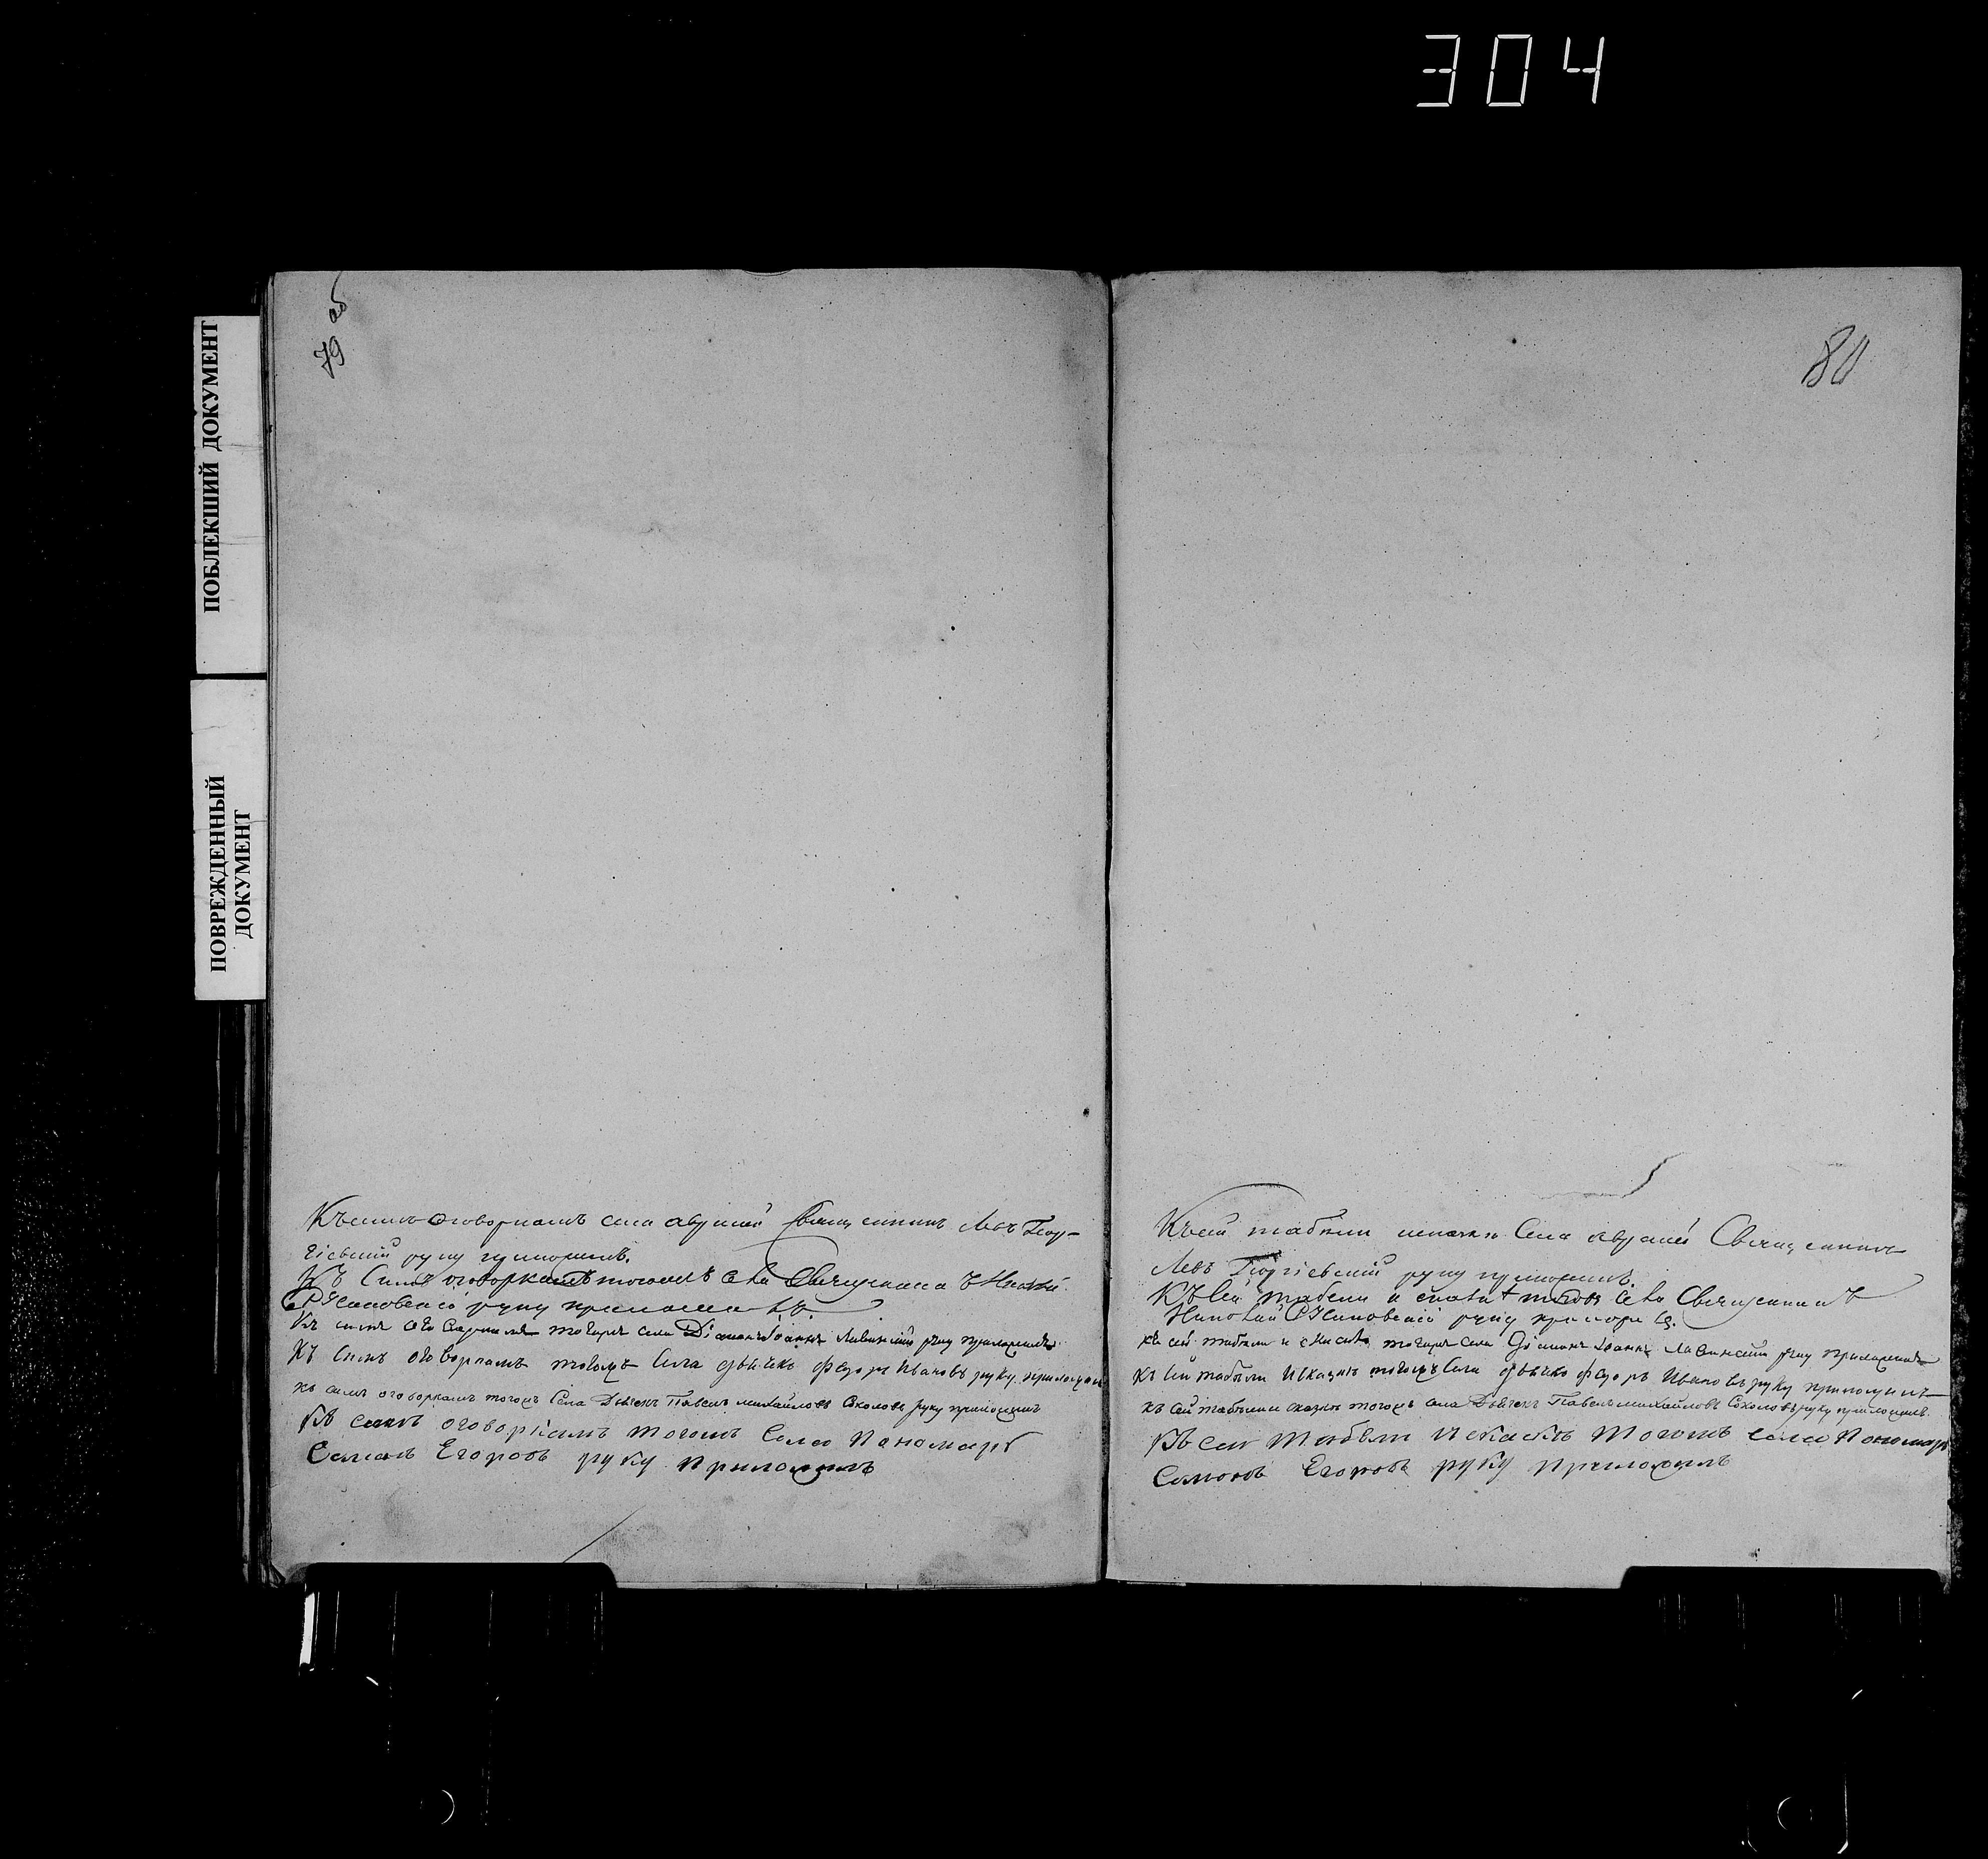 304
ПОБЛЕКШИЙ ДОКУМЕНТ
ПОВРЕЖДЕННЫЙ
ДОКУМЕНТ
79 об
Къ симъ оговоркамъ села Священникъ Левъ Геор-
гіевскій руку приложилъ.
Къ симъ оговоркамъ тогожъ села Священникъ Николай
руку приложилъ
Къ симъ оговоркамъ тогожъ села Діаконъ Іоаннъ руку приложилъ
Къ симъ оговоркамъ тогожъ села дьячекъ Федоръ Ивановъ руку приложилъ
къ симъ оговоркамъ тогожъ села Дьячекъ Павелъ Михайловъ Соколовъ руку приложилъ
Къ симъ оговоркамъ тогожъ села Пономарь
Семенъ Егоровъ руку приложилъ
80
Къ сей табели села Священникъ
Левъ Георгіевскій руку приложилъ.
Къ сей табели и сказки тогожъ села Священникъ
Николай руку приложилъ.
къ сей табели и сказкѣ тогожъ села Діаконъ Іоаннъ руку приложилъ
Къ сей табели и сказкѣ тогожъ села дьячекъ Федоръ Ивановъ руку приложилъ
къ сей табели и сказкѣ тогожъ села Дьячекъ Павелъ Михайловъ Соколовъ руку приложилъ.
Къ сей табели и сказкѣ тогожъ села Пономарь
Семенъ Егоровъ руку приложилъ